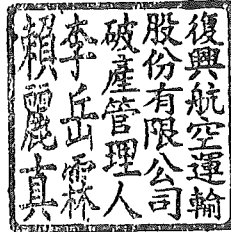 復興航空運輸
股份有限公司
破產管理人
李岳霖
賴麗真